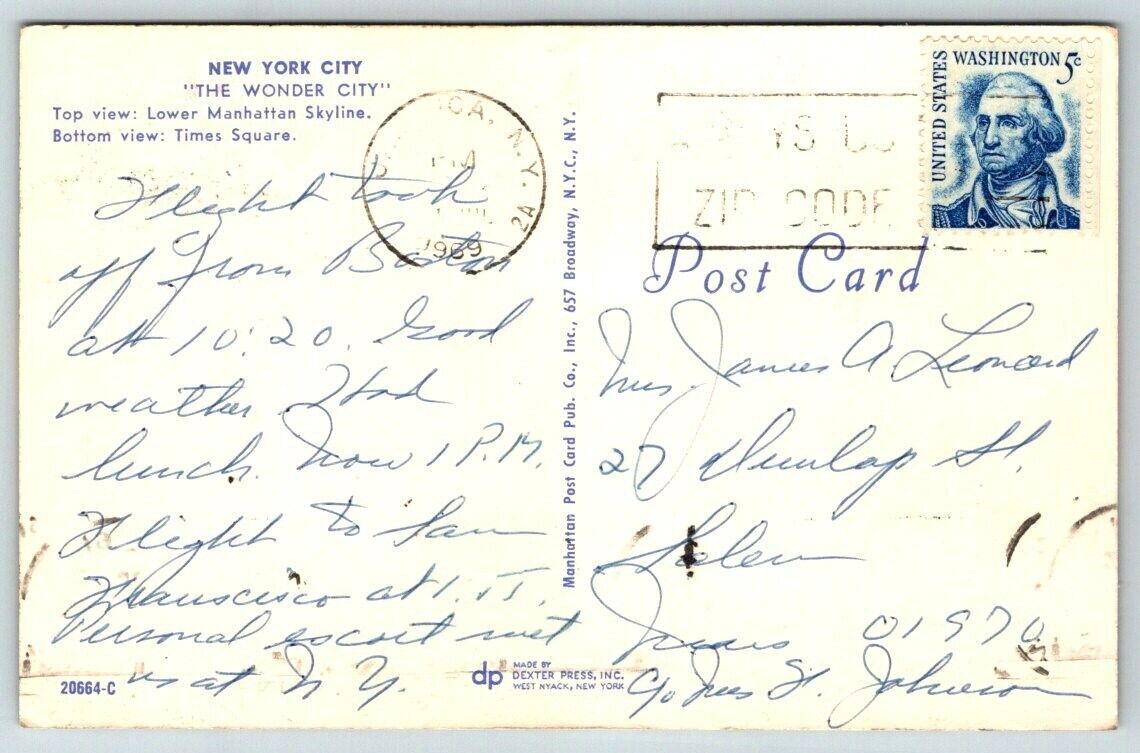 NEW YORK CITY
"THE WONDER CITY"
Top view: Lower Manhattan Skyline.
Bottom view: Times Square.
Flight took
off from Boston
at 10:20. Good
weather. Had
lunch. Now 1 P.M.
Flight to San
Francisco at 1.
Personal escort met
us at N Y.
20664-C
CA, N.Y.
PM
1969
2A
Manhattan Post Card Pub. Co., Inc., 657 Broadway, N.Y.C., N.Y.
dp MADE BY
DEXTER PRESS, INC.
WEST NYACK, NEW YORK
ZIP CODE
UNITED STATES
WASHINGTON 5c
Post Card
Mrs. James A Leonard
27 Dunlap St.
Salem
Mass 01970
c/o Mrs H. Johnson